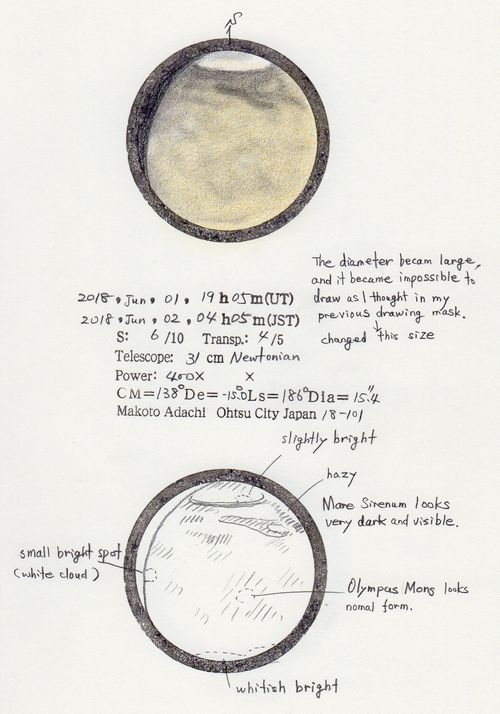 S
The diameter becam large,
and it became impossible to
draw as I thought in my
previous drawing mask.
changed this size
2018, Jun, 01, 19h05m(UT)
2018, Jun, 02, 04h05m(JST)
S: 6/10 Transp.: 4/5
Telescope: 31 cm Newtonian
Power: 400X X
CM=138°De=-15.0°Ls=186°Dia=15".4
Makoto Adachi Ohtsu City Japan 18-101
slightly bright
hazy
Mare Sirenum looks
very dark and visible.
small bright spot
(white cloud)
Olympus Mons looks
nomal form.
whitish bright